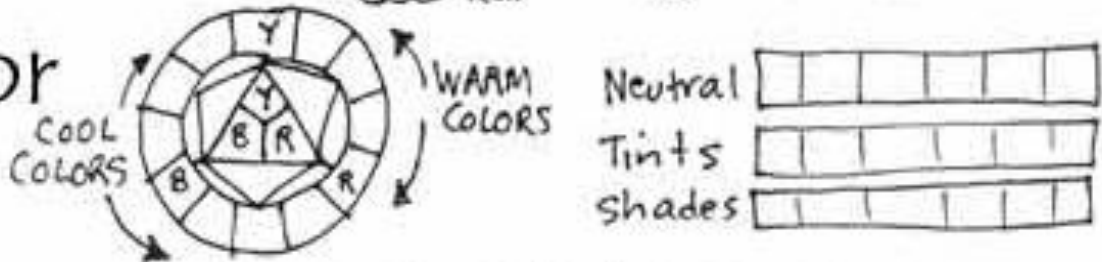 or
COOL
COLORS
Y
Y
B
R
B
R
WARM
COLORS
Neutral
Tints
Shades